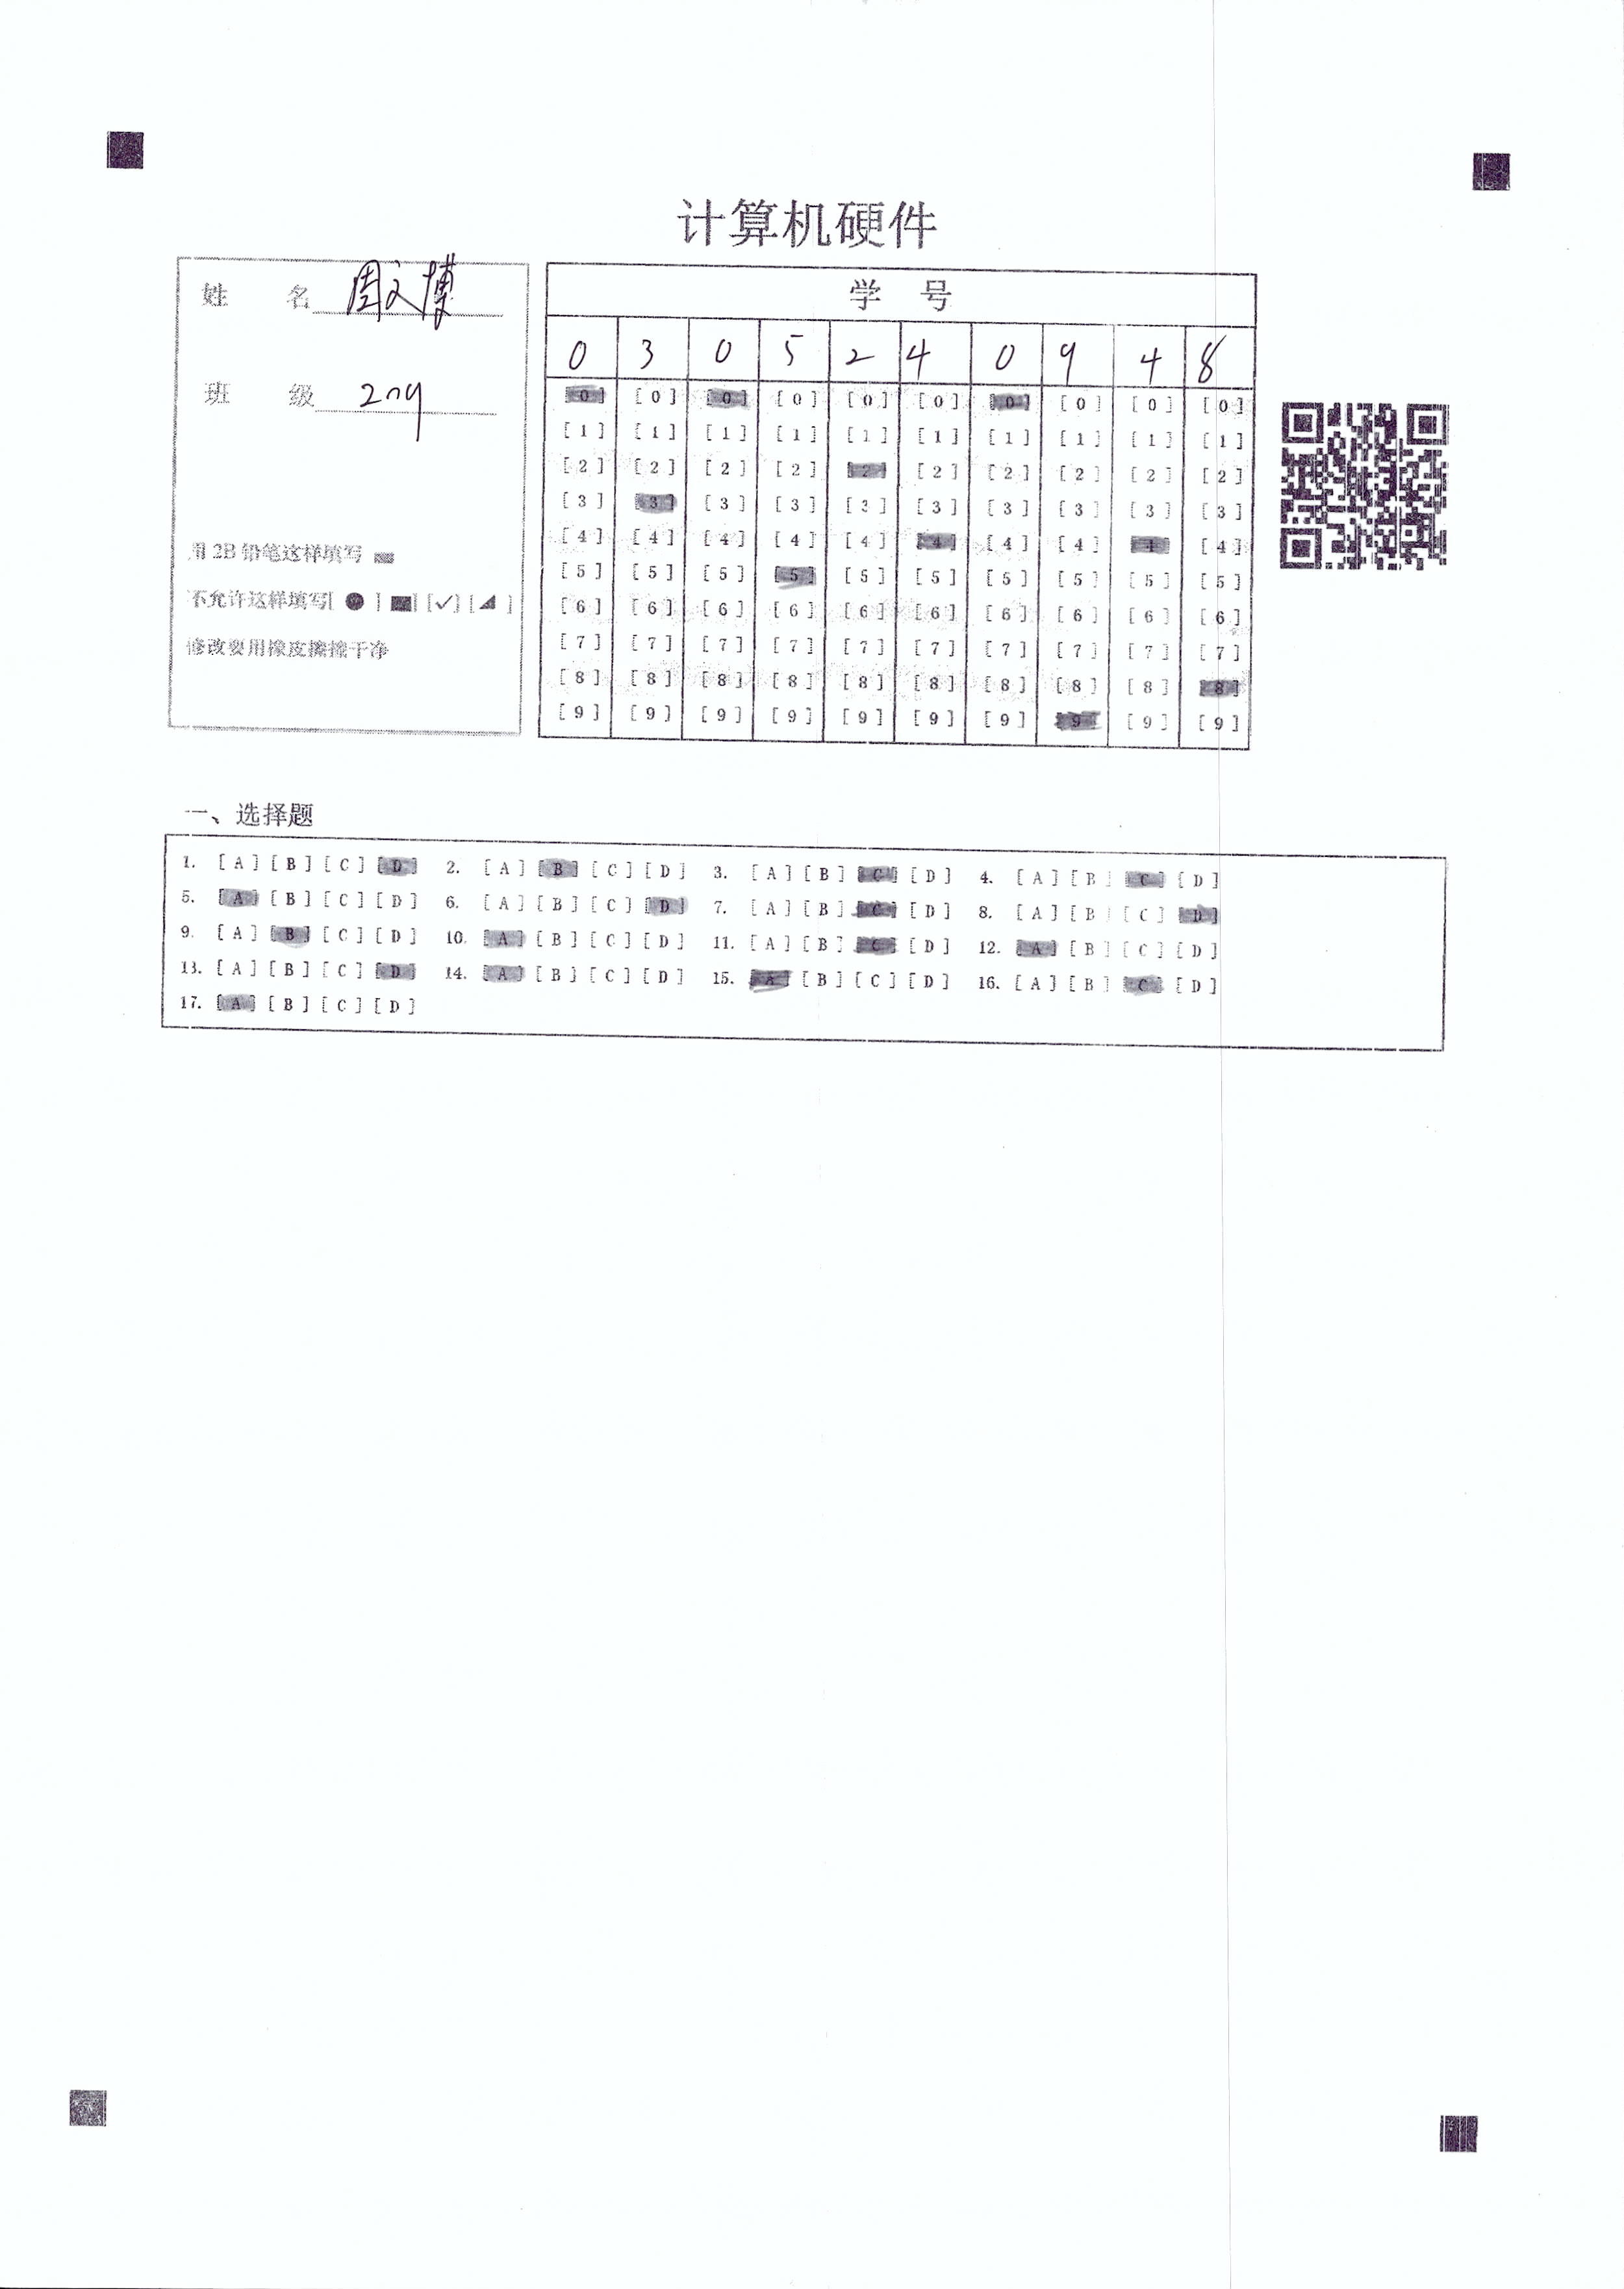 计算机硬件
姓 名 周文博
班 级 2209
用 2B 铅笔这样填写
不允许这样填写[ ● ] [■] [✓] [◢ ]
修改要用橡皮擦擦干净
学 号
0 3 0 5 2 4 0 9 4 8
[0] [0] [0] [0] [0] [0] [0] [0] [0] [0]
[1] [1] [1] [1] [1] [1] [1] [1] [1] [1]
[2] [2] [2] [2] [2] [2] [2] [2] [2] [2]
[3] [3] [3] [3] [3] [3] [3] [3] [3] [3]
[4] [4] [4] [4] [4] [4] [4] [4] [4] [4]
[5] [5] [5] [5] [5] [5] [5] [5] [5] [5]
[6] [6] [6] [6] [6] [6] [6] [6] [6] [6]
[7] [7] [7] [7] [7] [7] [7] [7] [7] [7]
[8] [8] [8] [8] [8] [8] [8] [8] [8] [8]
[9] [9] [9] [9] [9] [9] [9] [9] [9] [9]
一、选择题
1. [A] [B] [C] [D] 2. [A] [B] [C] [D] 3. [A] [B] [C] [D] 4. [A] [B] [C] [D]
5. [A] [B] [C] [D] 6. [A] [B] [C] [D] 7. [A] [B] [C] [D] 8. [A] [B] [C] [D]
9. [A] [B] [C] [D] 10. [A] [B] [C] [D] 11. [A] [B] [C] [D] 12. [A] [B] [C] [D]
13. [A] [B] [C] [D] 14. [A] [B] [C] [D] 15. [A] [B] [C] [D] 16. [A] [B] [C] [D]
17. [A] [B] [C] [D]